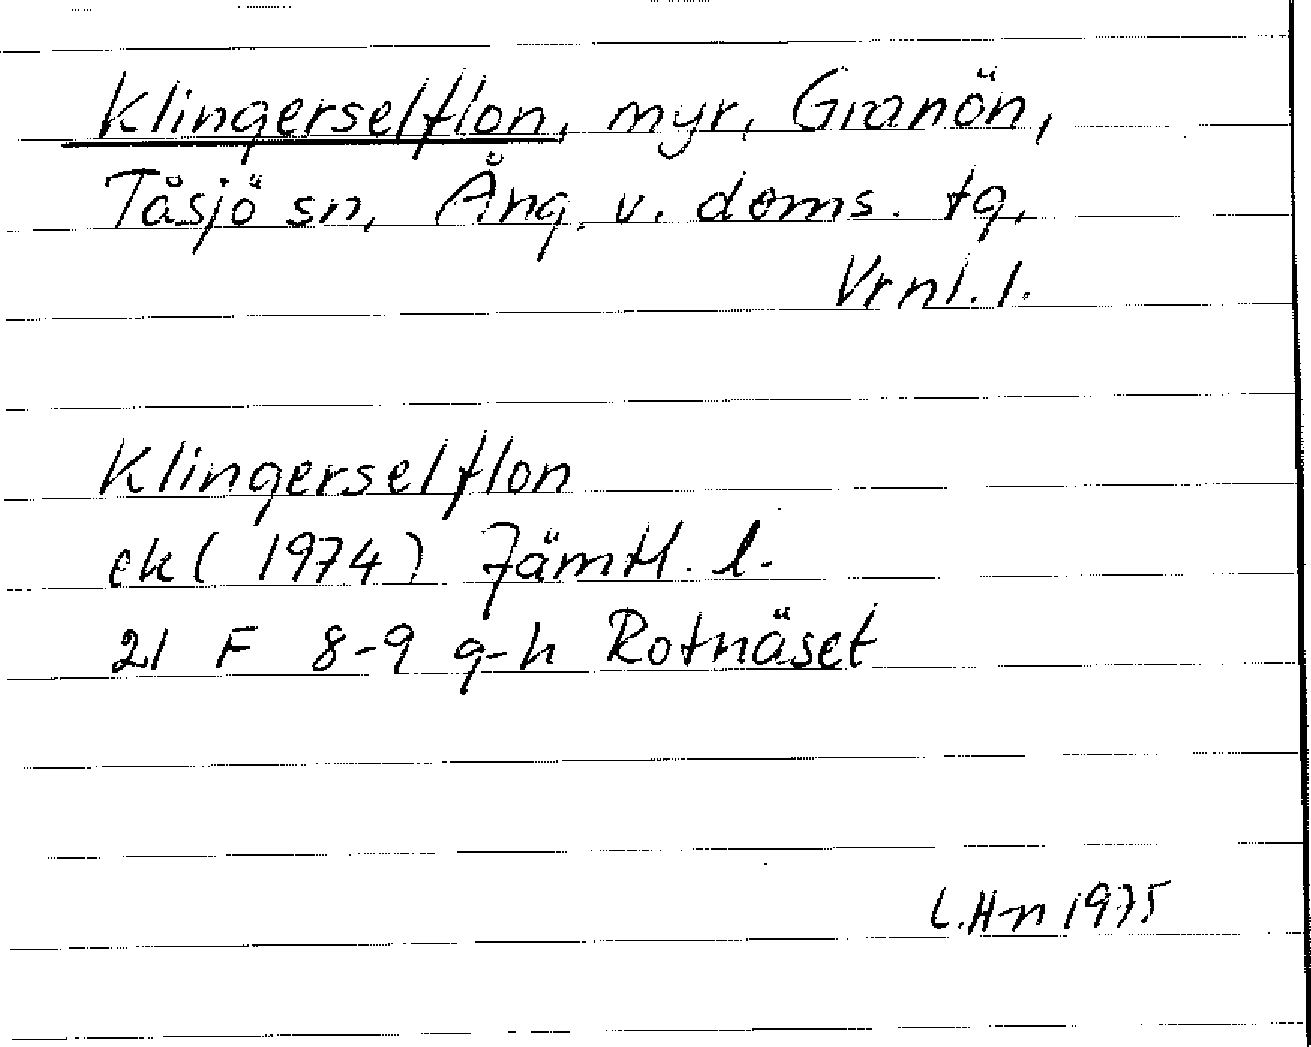 Klingerselflon, myr, Granön,
Tåsjö sn, Ång. v. doms. tg,
Vrnl. l.
Klingerselflon
ek (1974) Jämtl. l.
21 F 8-9 g-h Rotnäset
L.H-n 1975